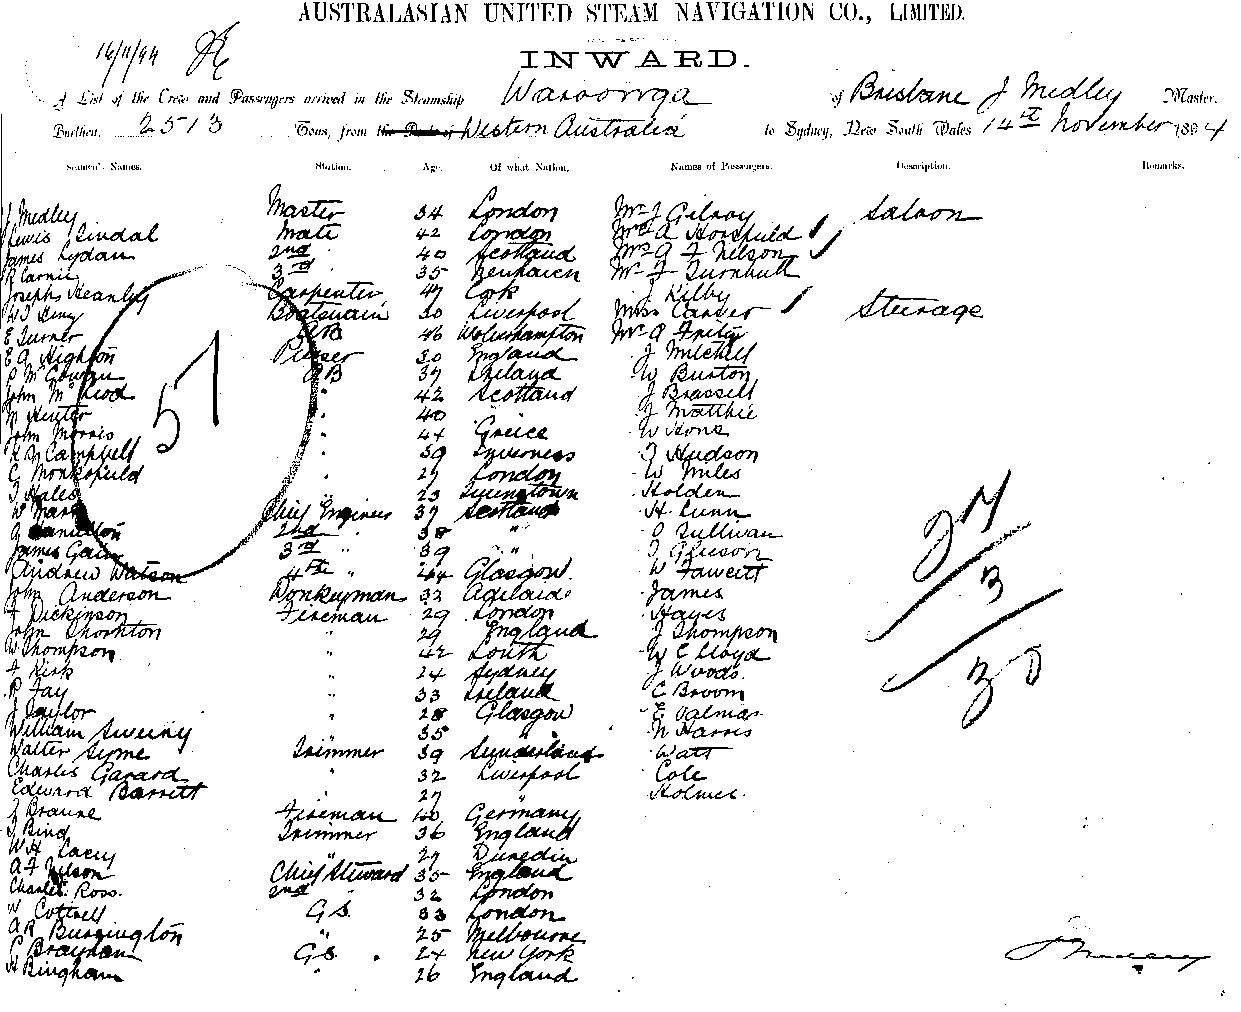 AUSTRALASIAN UNITED STEAM NAVIGATION CO., LIMITED.
16/11/94
INWARD.
A List of the Crew and Passengers arrived in the Steamship Waroonga of Brisbane J Medley Master.
Burthen, 2513 Tons, from the Port of Western Australia to Sydney, New South Wales 14th November 1894
Seamen's Names. Station. Age. Of what Nation. Names of Passengers. Description. Remarks.
J Medley Master 34 London Mr J Gilroy Saloon
Lewis Sindal Mate 42 London Mrs A Horsfield
James Lydan 2nd 40 Scotland Mrs A F Nelson
R Carnie 3rd 35 Mr F Turnbull
Joseph Heanley Carpenter 47 Cork J Kilby
Boatswain 30 Liverpool Miss Carver Steerage
E Turner AB 46 Wolverhampton Mr A
E A Highton 30 England J Mitchell
P McGowan AB 37 Ireland W Burton
John McLeod " 42 Scotland J Brassell
N Hunter " 40 " J Matthie
John Morris " 44 Greece W Hone
Campbell " 39 Inverness J Hudson
C Monksfield " 27 London W Miles
J Hales " 23 Holden
W Chief Engineer 37 Scotland H Lunn
Hamilton 2nd " 38 " O Sullivan
James Gain 3rd " 39 " " J Gleeson
Andrew Watson 4th " 44 Glasgow W Fawcett
John Anderson Donkeyman 32 Adelaide James
F Dickinson Fireman 29 London Hayes
John Thornton " 29 England J Thompson
W Thompson " 42 Louth W E Lloyd
F Kirk " 24 Sydney J Woods
P Fay " 33 Ireland C Broom
J Taylor " 28 Glasgow E
William Sweeny " 35 " N Harris
Walter Syme Trimmer 39 Sunderland Watt
Charles Garard " 32 Liverpool Cole
Edward Barrett " 27 " Holmes
J Braune Fireman 40 Germany
J Bind Trimmer 36 England
W H Lacey " 27 Dunedin
A F Nilson Chief Steward 35 England
Charles Ross 2nd " 32 London
W Cottrell G.S. 33 London
A R Burrington " 25 Melbourne
C Brayham G.S. 24 New York
H Bingham " 26 England
57
27
3
30
J Medley